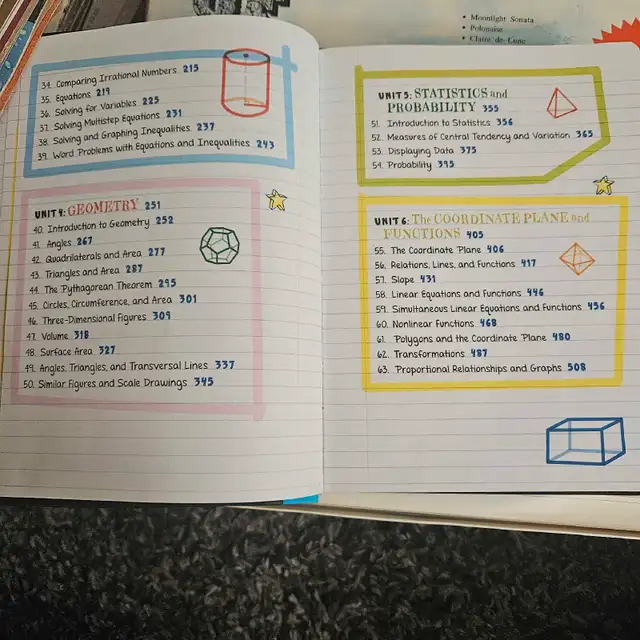 • Moonlight Sonata
• Polonaise
• Claire de Lune
34. Comparing Irrational Numbers 215
35. Equations 219
36. Solving for Variables 225
37. Solving Multistep Equations 231
38. Solving and Graphing Inequalities 237
39. Word Problems with Equations and Inequalities 243
UNIT 4: GEOMETRY 251
40. Introduction to Geometry 252
41. Angles 267
42. Quadrilaterals and Area 277
43. Triangles and Area 287
44. The Pythagorean Theorem 295
45. Circles, Circumference, and Area 301
46. Three-Dimensional Figures 309
47. Volume 318
48. Surface Area 327
49. Angles, Triangles, and Transversal Lines 337
50. Similar Figures and Scale Drawings 345
UNIT 5: STATISTICS and
PROBABILITY 355
51. Introduction to Statistics 356
52. Measures of Central Tendency and Variation 365
53. Displaying Data 375
54. Probability 395
UNIT 6: The COORDINATE PLANE and
FUNCTIONS 405
55. The Coordinate Plane 406
56. Relations, Lines, and Functions 417
57. Slope 431
58. Linear Equations and Functions 446
59. Simultaneous Linear Equations and Functions 456
60. Nonlinear Functions 468
61. Polygons and the Coordinate Plane 480
62. Transformations 487
63. Proportional Relationships and Graphs 508